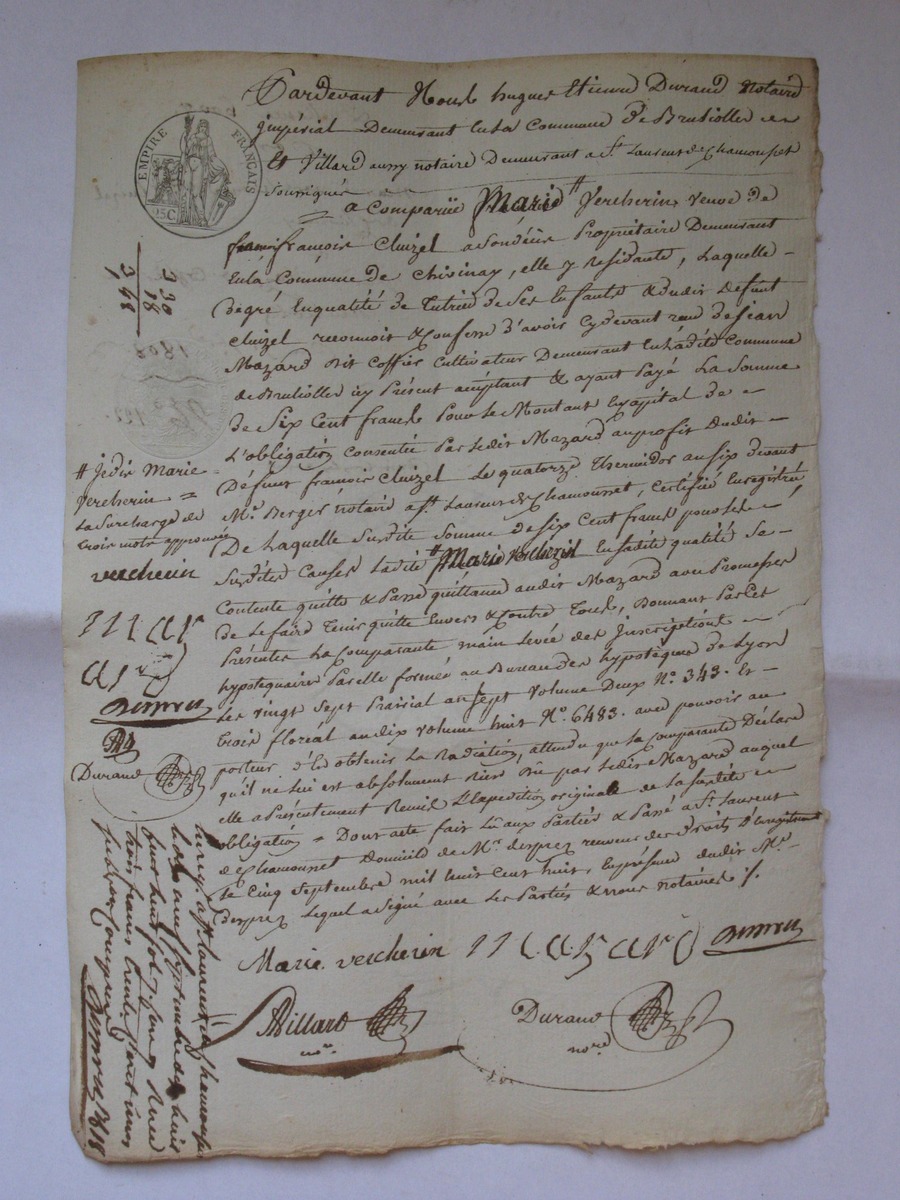 Pardevant Nous hugues Etienne Durand Notaire
impérial Demeurant en La Commune De Brussiolles
Et Villard aussy notaire Demeurant a St. Laurent de Chamousset
Soussignés
a Comparüe Marie # Vercherin veuve de
françois Cluizel Propriétaire Demeurant
En la Commune De Chivinay, elle y résidante, Laquelle
De gré En qualité de Tutrice de Ses Enfants & dudit défunt
Cluizel reconnoit & Confesse d'avoir cydevant reçu de jean
Mazard dit Coffier Cultivateur Demeurant En Ladite Commune
de Brussiolles icy Présent acceptant & ayant Payé La Somme
De Six Cent francs Pour le Montant En Capital de
L'obligation Consentie Par Ledit Mazard au profit Dudit
Défunt françois Cluizel Le quatorze Thermidor an six devant
Me. Berger notaire a St. Laurent de Chamousset, Certifié Enregistré
De Laquelle Susdite Somme de Six Cent francs pour les
Susdites Causes Ladite # Marie Vercherin En Sadite qualité Se
Contente quitte & Passe quittance audit Mazard avec Promesse
De Le faire Tenir quitte Envers & Contre Tous, Donnant Par Ces
Présentes La Comparante main levée des Inscriptions
hypotéquaires Par elle formées au Bureau des hypotèques de Lyon
Les vingt Sept Prairial an Sept Volume Deux No. 343. Et
Trois floréal an dix volume huit No. 6483. avec pouvoir au
porteur d'En obtenir La Radiation, attendu que La Comparante Déclare
qu'il ne Lui est absolument Rien Dû par Ledit Mazard auquel
elle a Présentement Remis L'Expedition originale de La Susdite
obligation = Dont acte fait Lû aux Parties & Passé a St. Laurent
de Chamousset Domicile de Mr. Desprez receveur des Droits D'Enregistrement
Le Cinq Septembre mil huit Cent huit, En présence dudit Mr.
Desprez Lequel a Signé avec Les Parties & nous notaires ./.
Marie. vercherin mazard
Villard
nore.
Durand
nore.
EMPIRE FRANÇAIS
25 C
330
18
348
1808
# Je dit Marie
Vercherin =
La Surcharge de
Trois mots approuvée
vercherin
mazar
Durand